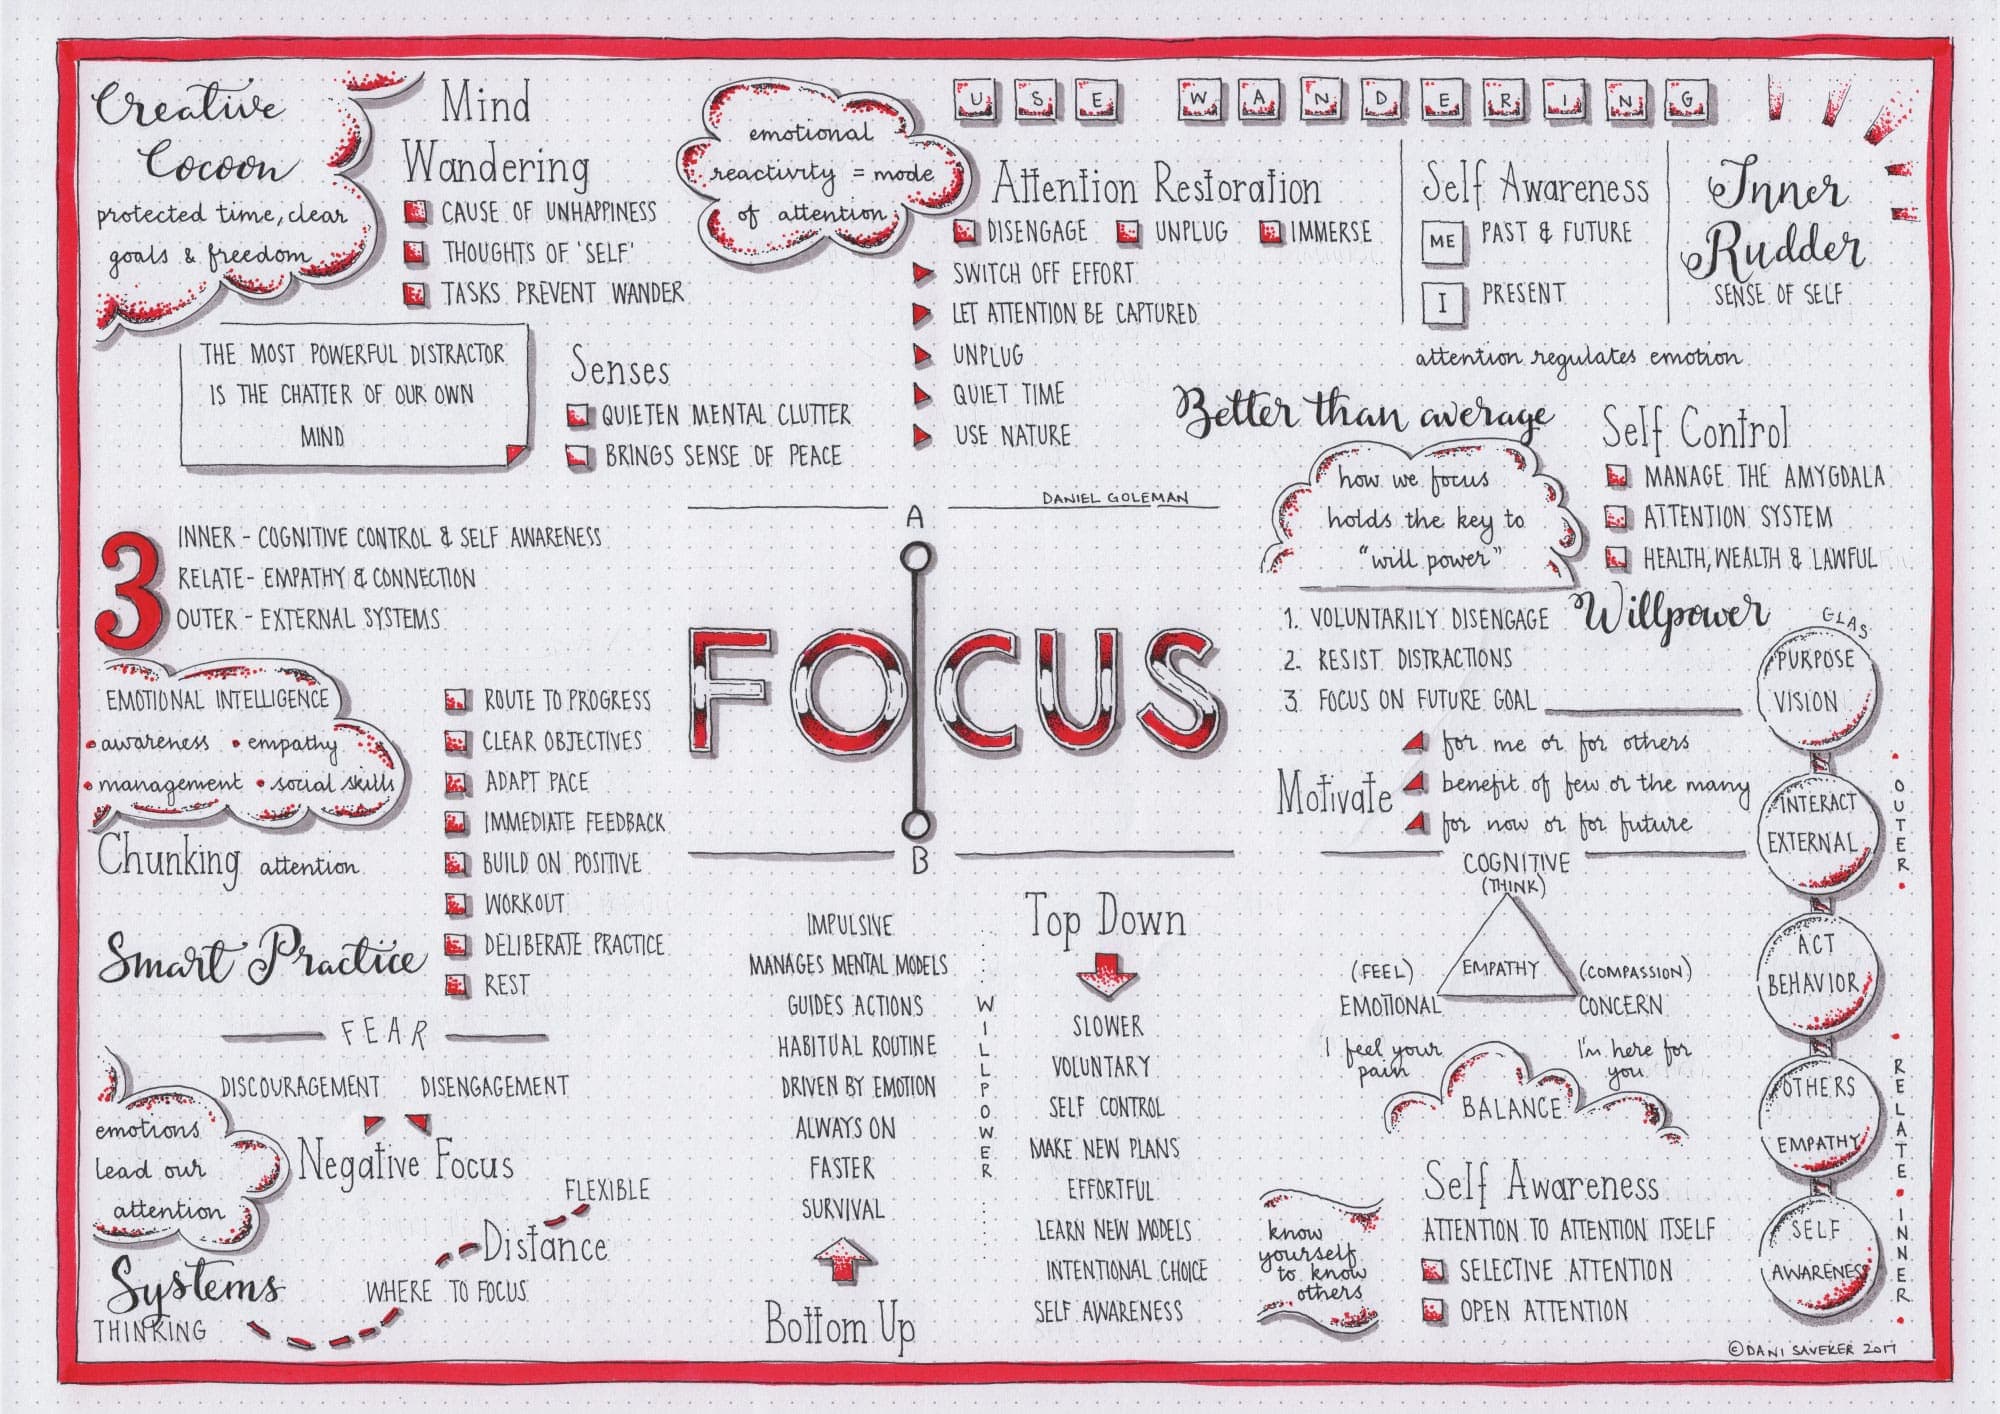 Creative
Cocoon
protected time, clear
goals & freedom
Mind
Wandering
CAUSE OF UNHAPPINESS
THOUGHTS OF 'SELF'
TASKS PREVENT WANDER
emotional
reactivity = mode
of attention
USE WANDERING
Attention Restoration
DISENGAGE UNPLUG IMMERSE
SWITCH OFF EFFORT
LET ATTENTION BE CAPTURED
UNPLUG
QUIET TIME
USE NATURE
Self Awareness
ME PAST & FUTURE
I PRESENT
Inner
Rudder
SENSE OF SELF
attention regulates emotion
THE MOST POWERFUL DISTRACTOR
IS THE CHATTER OF OUR OWN
MIND
Senses
QUIETEN MENTAL CLUTTER
BRINGS SENSE OF PEACE
Better than average
how we focus
holds the key to
"will power"
Self Control
MANAGE THE AMYGDALA
ATTENTION SYSTEM
HEALTH, WEALTH & LAWFUL
3
INNER - COGNITIVE CONTROL & SELF AWARENESS
RELATE - EMPATHY & CONNECTION
OUTER - EXTERNAL SYSTEMS
DANIEL GOLEMAN
A
FOCUS
B
Willpower
1. VOLUNTARILY DISENGAGE
2. RESIST DISTRACTIONS
3. FOCUS ON FUTURE GOAL
EMOTIONAL INTELLIGENCE
• awareness • empathy
• management • social skills
Chunking attention
Smart Practice
ROUTE TO PROGRESS
CLEAR OBJECTIVES
ADAPT PACE
IMMEDIATE FEEDBACK
BUILD ON POSITIVE
WORKOUT
DELIBERATE PRACTICE
REST
Motivate
for me or for others
benefit of few or the many
for now or for future
GLAS
PURPOSE
VISION
INTERACT
EXTERNAL
ACT
BEHAVIOR
OTHERS
EMPATHY
SELF
AWARENESS
• OUTER •
• RELATE • INNER •
COGNITIVE
(THINK)
EMPATHY
(FEEL)
EMOTIONAL
(COMPASSION)
CONCERN
I feel your
pain
I'm here for
you
BALANCE
FEAR
DISCOURAGEMENT DISENGAGEMENT
Negative Focus
emotions
lead our
attention
FLEXIBLE
Distance
WHERE TO FOCUS
Systems
THINKING
IMPULSIVE
MANAGES MENTAL MODELS
GUIDES ACTIONS
HABITUAL ROUTINE
DRIVEN BY EMOTION
ALWAYS ON
FASTER
SURVIVAL
Bottom Up
WILLPOWER
Top Down
SLOWER
VOLUNTARY
SELF CONTROL
MAKE NEW PLANS
EFFORTFUL
LEARN NEW MODELS
INTENTIONAL CHOICE
SELF AWARENESS
know
yourself
to know
others
Self Awareness
ATTENTION TO ATTENTION ITSELF
SELECTIVE ATTENTION
OPEN ATTENTION
© DANI SAVEKER 2017